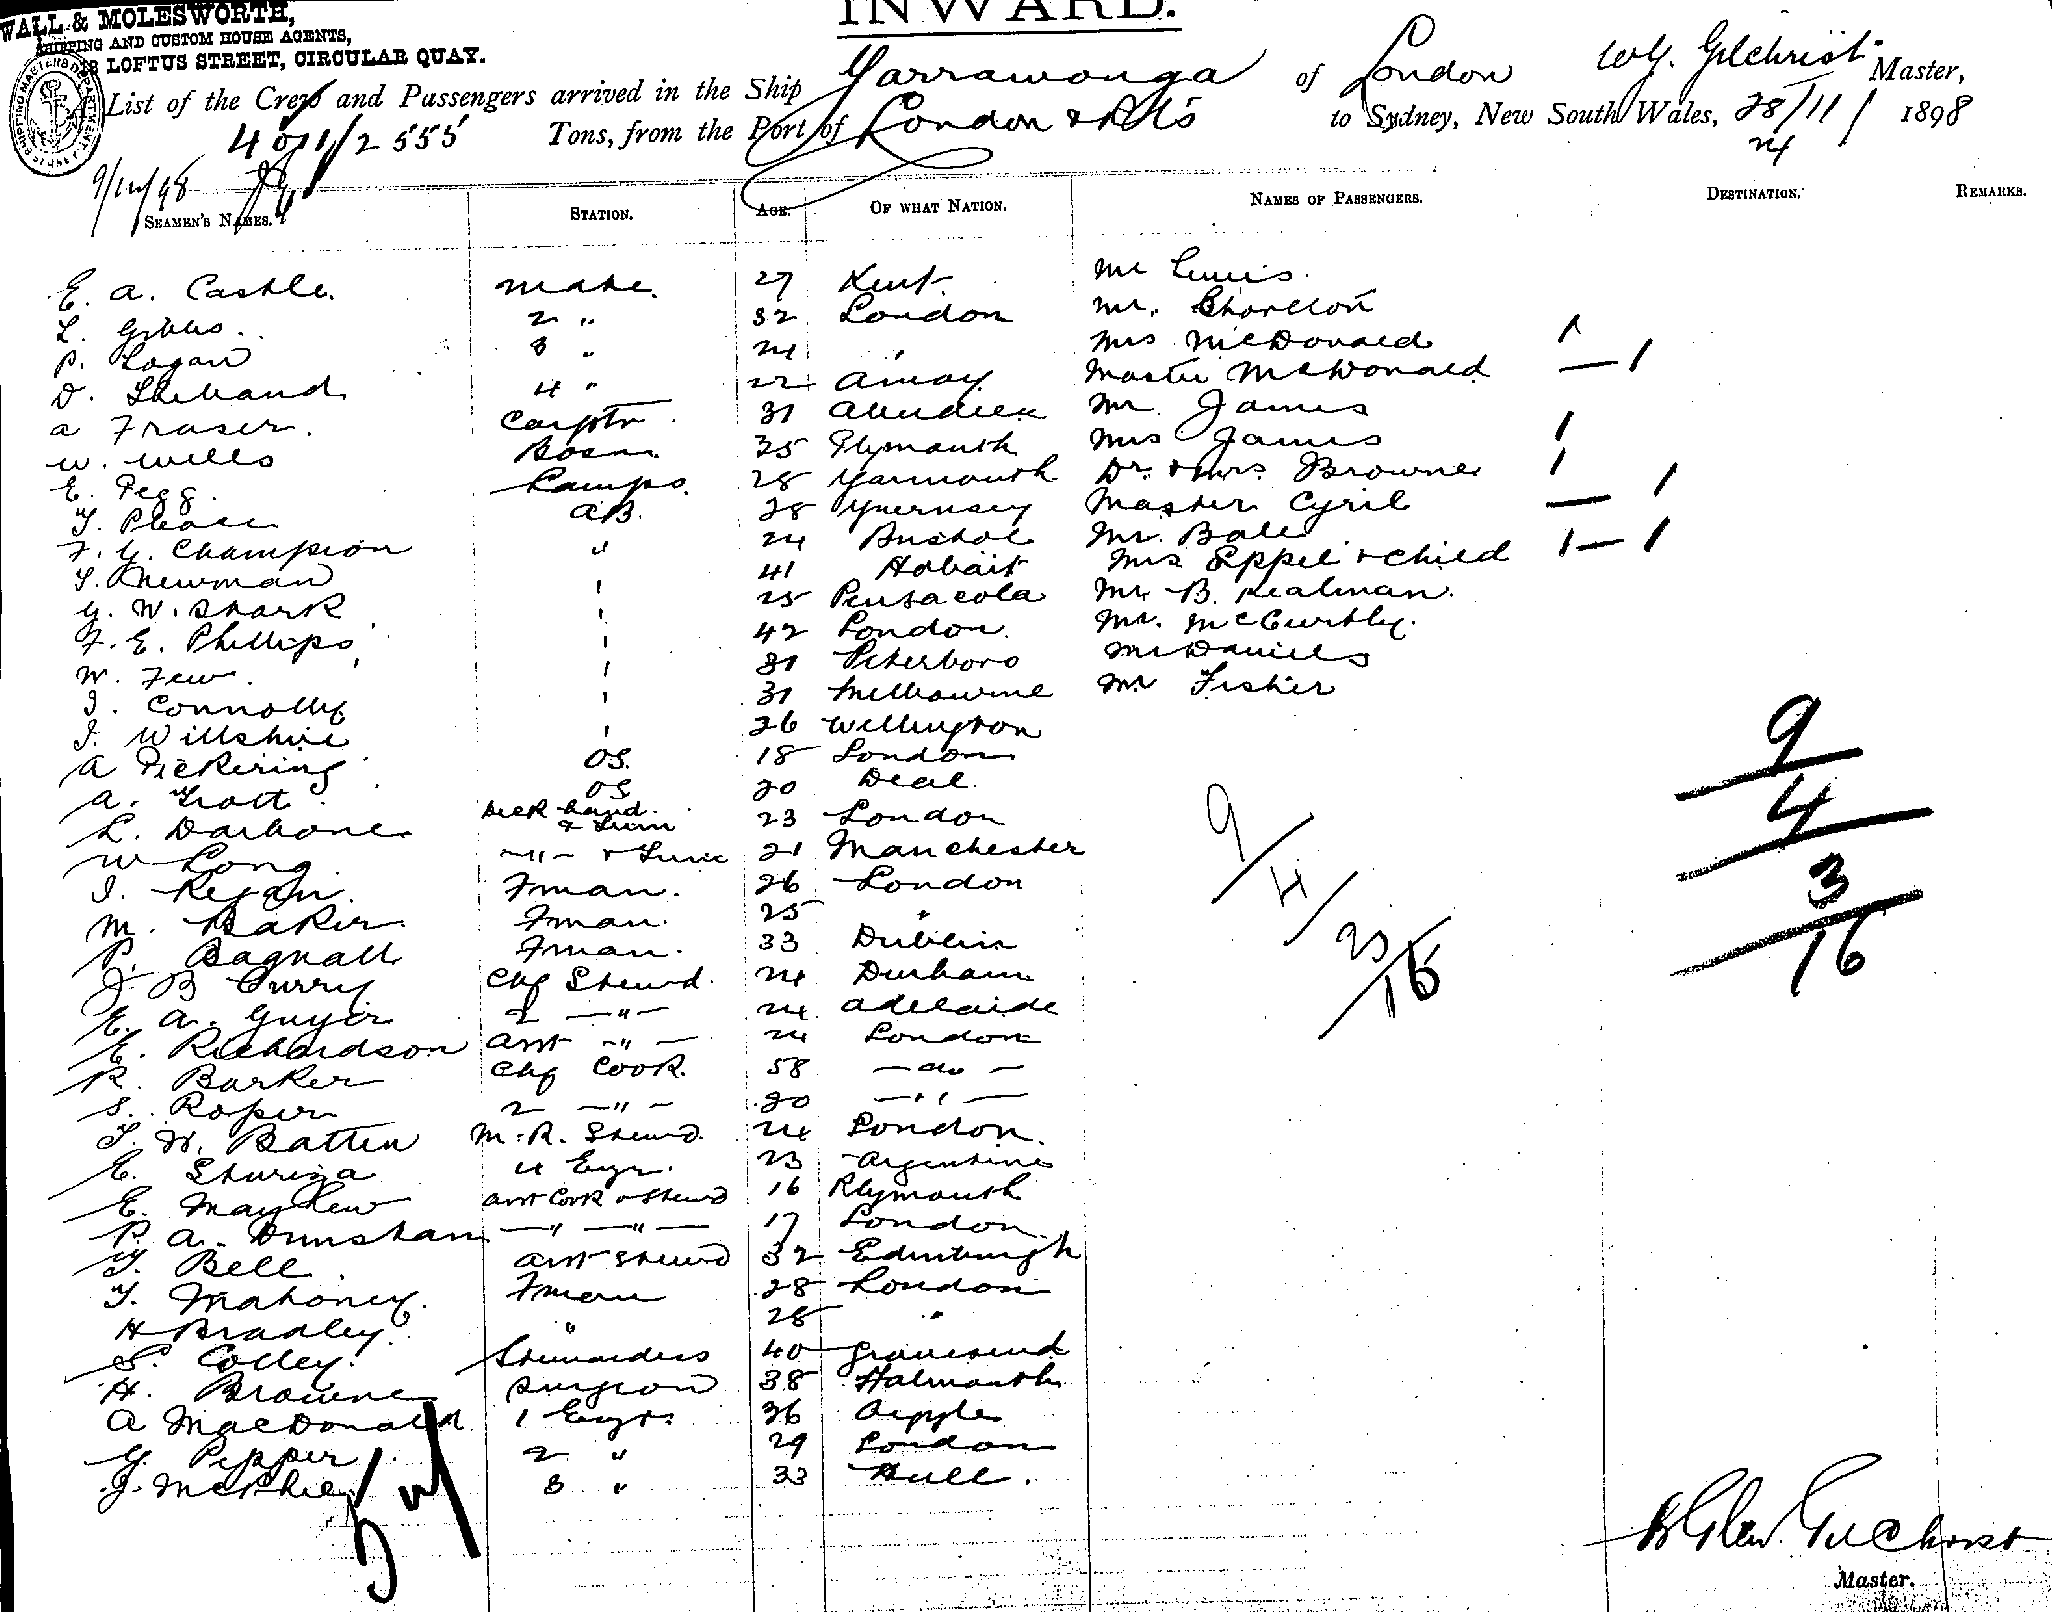 INWARD.
WALL & MOLESWORTH,
SHIPPING AND CUSTOM HOUSE AGENTS,
LOFTUS STREET, CIRCULAR QUAY.
List of the Crew and Passengers arrived in the Ship Yarrawonga of London Wg. Gilchrist Master,
4011/2555 Tons, from the Port of London & Pts to Sydney, New South Wales, 28/11/1898
24
9/12/98
SEAMEN'S NAMES. STATION. AGE. OF WHAT NATION. NAMES OF PASSENGERS. DESTINATION. REMARKS.
E. A. Castle. Mate. 27 Kent. Mr Lewis.
L. Gibbs. 2 " 32 London Mr. Chorlton
P. Logan 3 " 24 " Mrs McDonald 1
D. 4 " 22 Amoy Master McDonald — 1
A Fraser. Carptr. 31 Aberdeen Mr. James
W. Wills Bosn. 35 Plymouth Mrs James 1
E. Pegg. Lamps. 28 Yarmouth Dr. & Mrs. Browne 1
T. Please AB. 28 Guernsey Master Cyril — 1
F. G. Champion " 24 Bristol Mr. Bale
T. Newman " 41 Hobart Mrs Eppel & Child 1 — 1
G. W. Stark " 25 Pensacola Mr. B. Realman.
F. E. Phillips " 42 London. Mr. McCurthy.
W. Few. " 31 Peterboro Mr Daniels
J. Connolly " 31 Melbourne Mr Fisher
J. Willshire " 26 Wellington
A Pickering OS. 18 London
A. Trott OS 20 Deal.
L. Darbone Deck hand. & 23 London
W Long — " — & 21 Manchester
J. Regan. Fman. 26 London
M. Baker Fman. 25 "
P. Bagnall Fman. 33 Dublin
J B Curry Chf Stewd. 24 Durham
E. A. Guyer 2 — " — 24 Adelaide
E. Richardson Asst — " — 24 London
R. Barker Chf Cook. 58 — do —
S. Roper 2 — " — 20 — " —
T. H. Batten M. R. Stewd. 24 London.
E. Sturiza 4 Engr. 23 Argentine
E. Mayhew Asst Cook & Stewd 16 Plymouth
P. A. Dunstan — " — " — 17 London
T. Bell. Asst Stewd 32 Edinburgh
T. Mahoney. Fman 28 London
H Bradley. " 28 "
S. Colley. Stewardess 40 Gravesend
H. Browne Surgeon 38 Falmouth
A MacDonald 1 Engr. 36
G. Pepper 2 " 29 London
J. McPhie 3 " 33 Hull.
9/4/3/16
9
4
3
16
Gilchrist
Master.